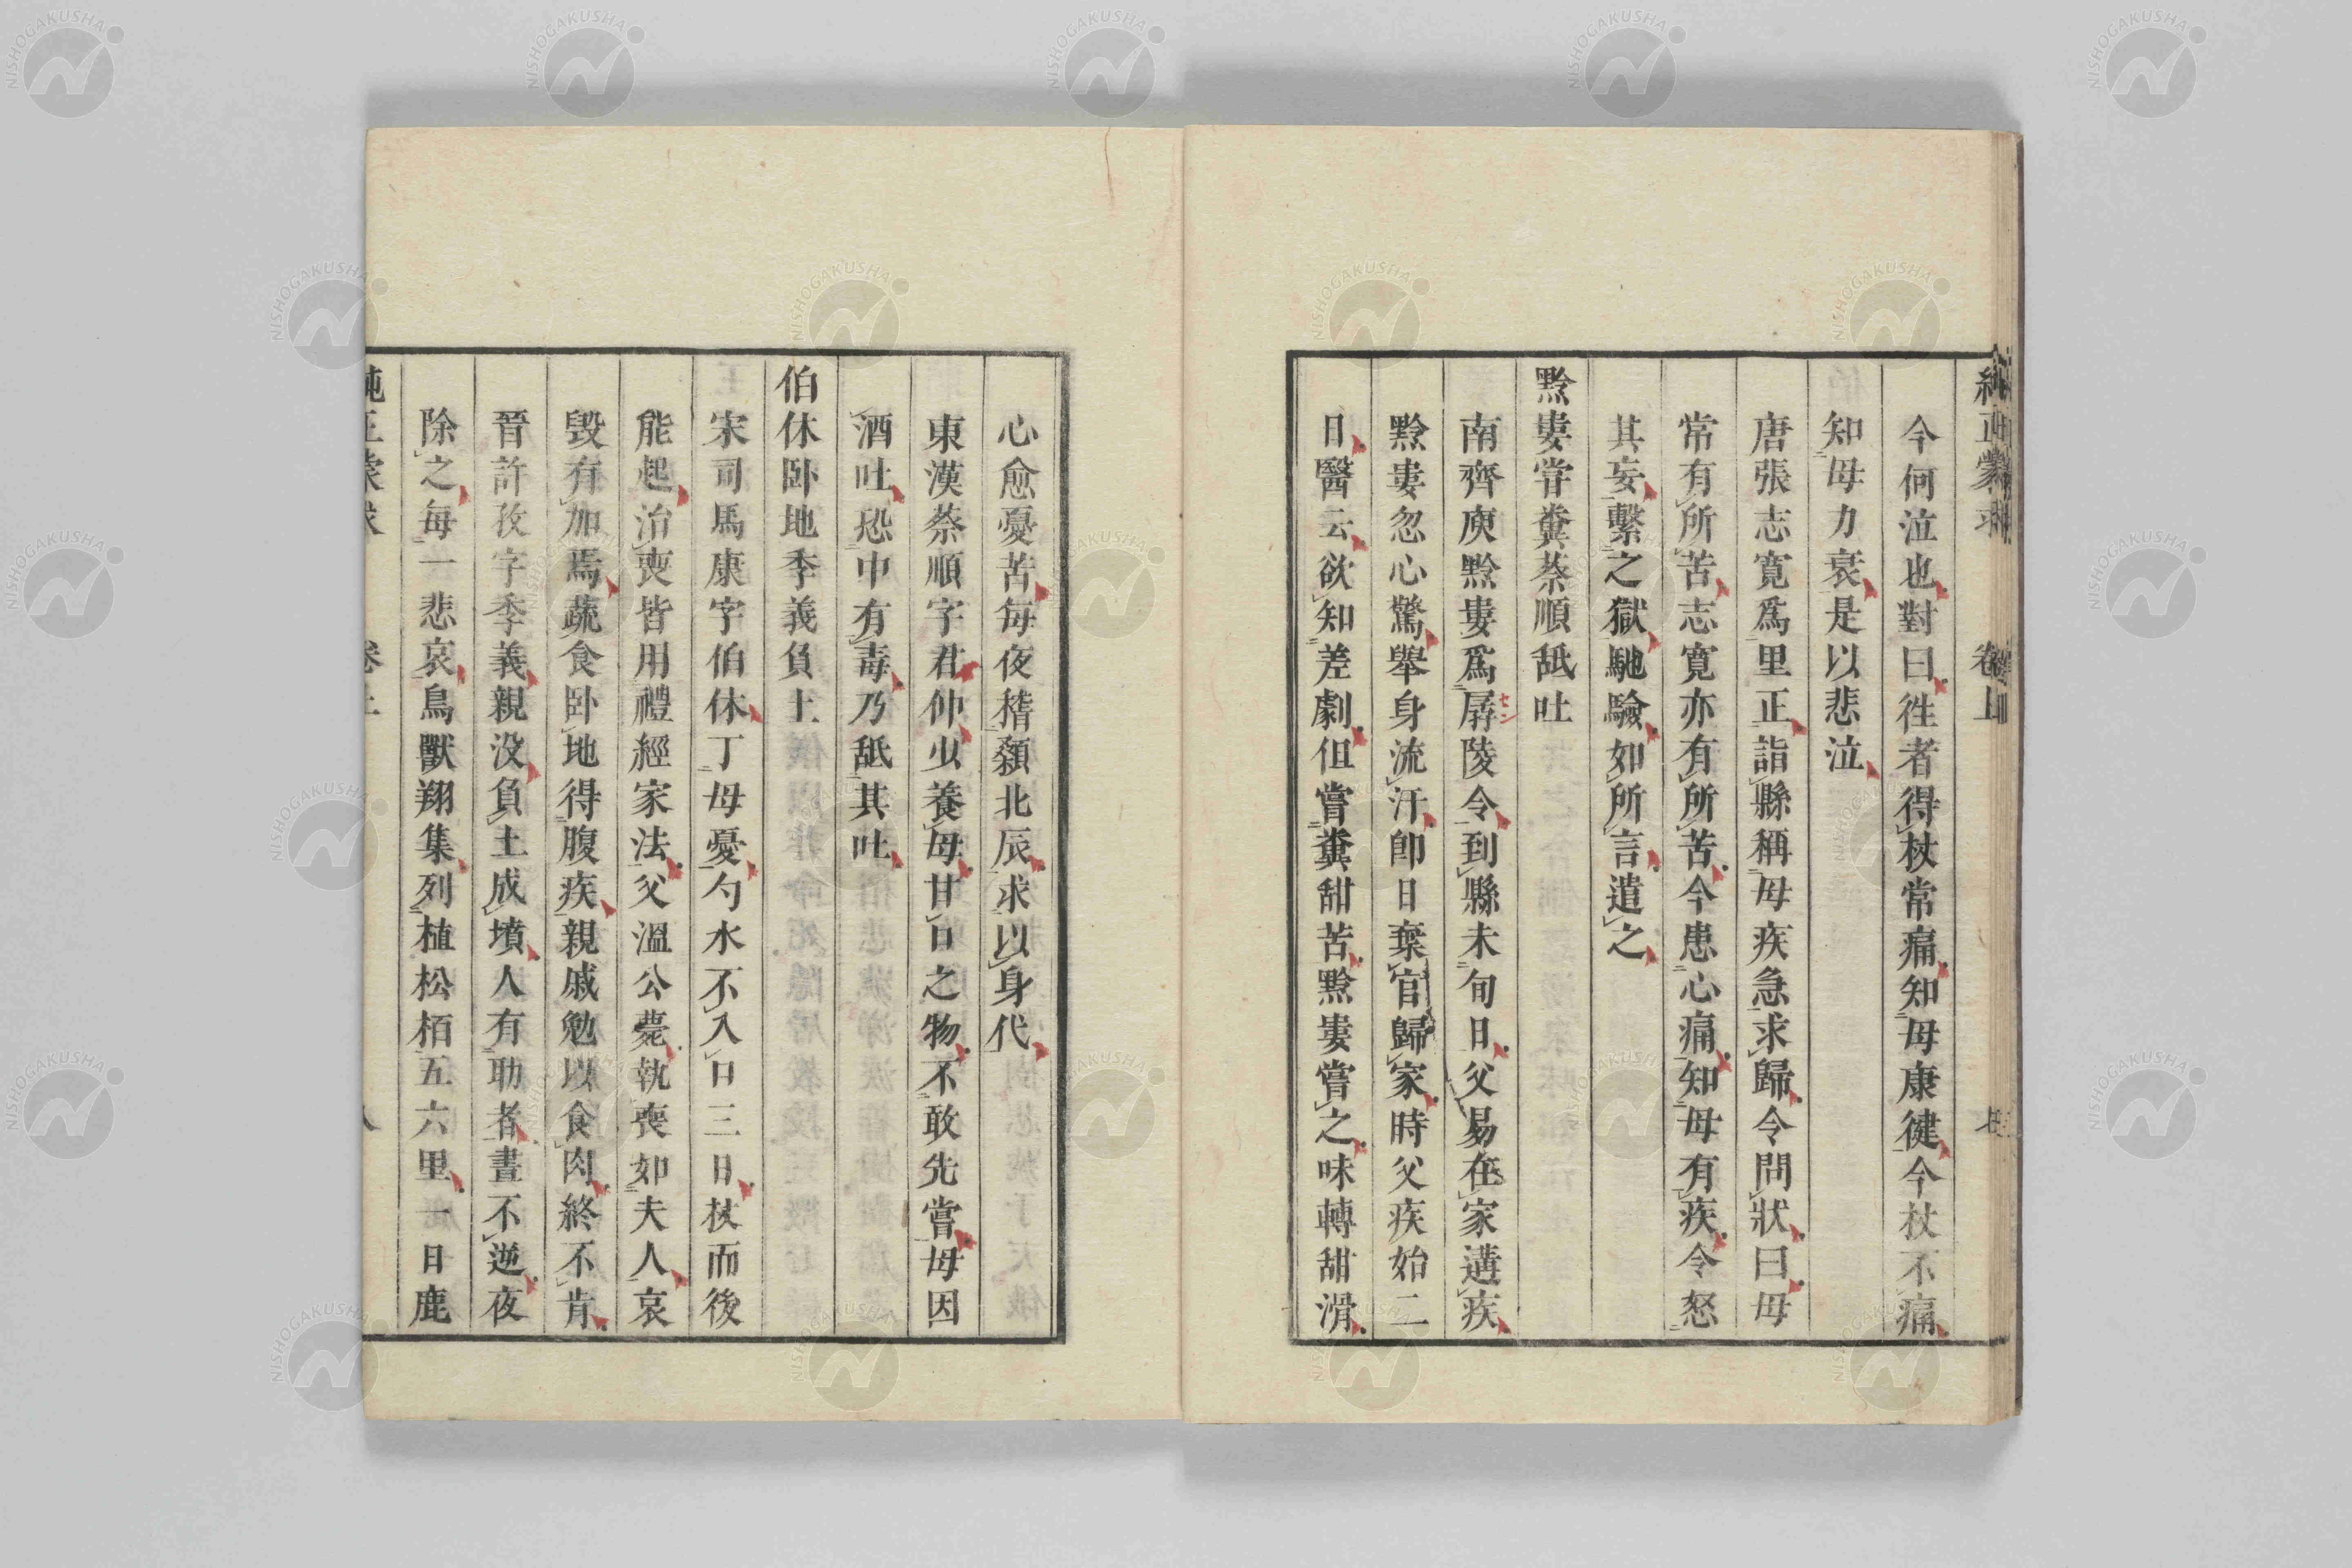 純正蒙求 卷上
今何泣也對曰徃者得杖常痛知母康健今杖不痛
知母力衰是以悲泣
唐張志寛爲里正詣縣稱母疾急求歸令問狀曰母
常有所苦志寛亦有所苦今患心痛知母有疾令怒
其妄繫之獄馳驗如所言遣之
黔婁甞糞蔡順舐吐
南齊庾黔婁爲孱陵令到縣未旬日父易在家遘疾
黔婁忽心驚舉身流汗卽日棄官歸家時父疾始二
日醫云欲知差劇但嘗糞甜苦黔婁嘗之味轉甜滑
心愈憂苦每夜稽顙北辰求以身代
東漢蔡順字君仲少養母甘口之物不敢先嘗母因
酒吐恐中有毒乃舐其吐
伯休卧地季義負土
宋司馬康字伯休丁母憂勺水不入口三日杖而後
能起治喪皆用禮經家法父溫公薨執喪如夫人哀
毀有加焉蔬食卧地得腹疾親戚勉以食肉終不肯
晉許孜字季義親没負土成墳人有助者晝不逆夜
除之每一悲哀鳥獸翔集列植松栢五六里一日鹿
純正蒙求 卷上 八
NISHOGAKUSHA